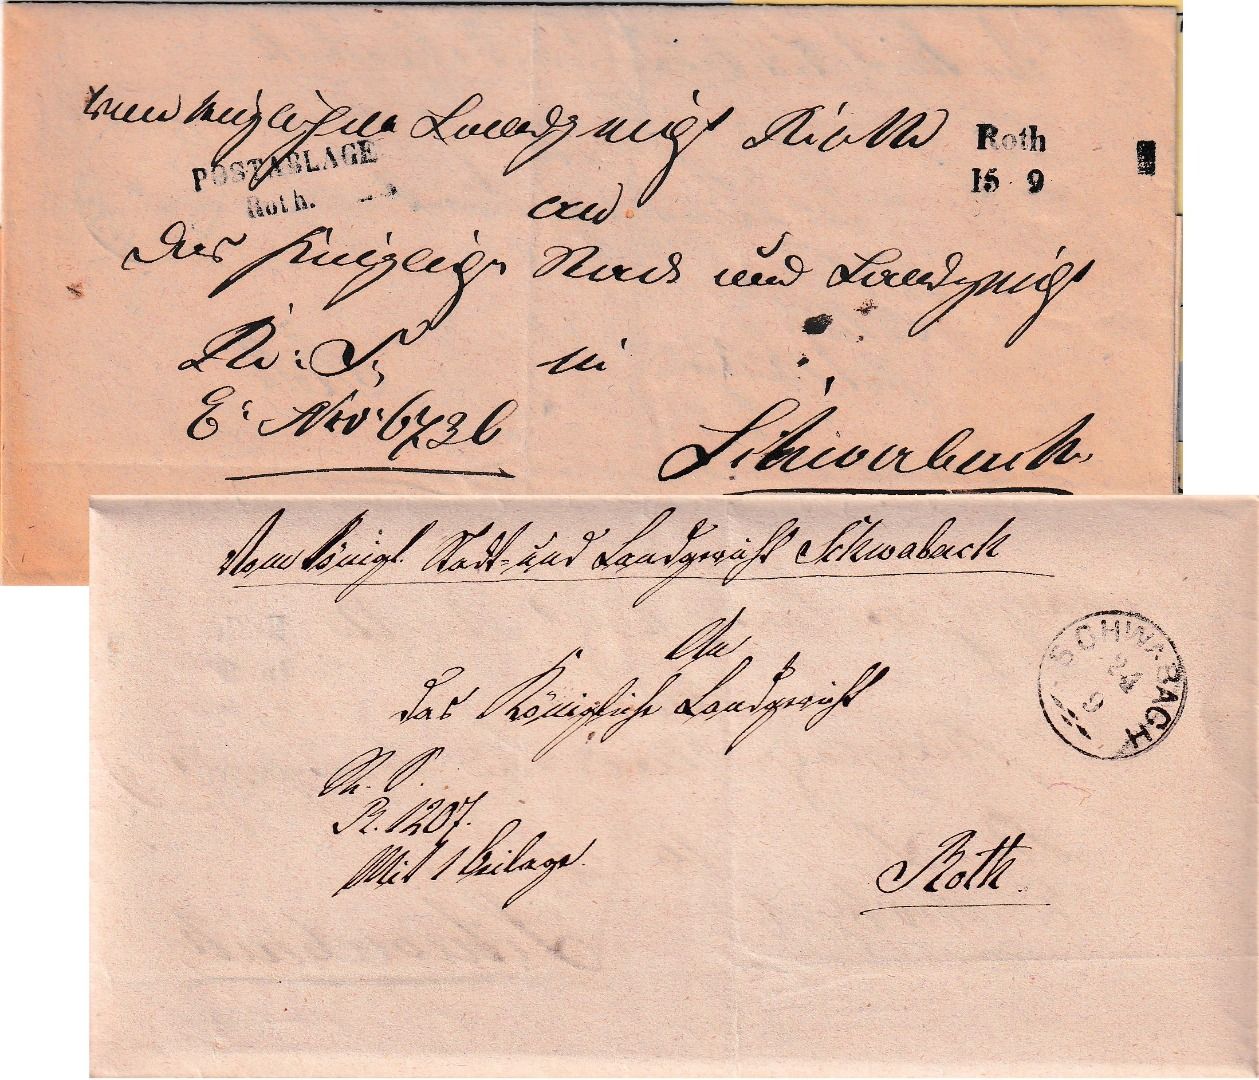 vom königlichen Landgericht Roth
Roth
15 9
POSTABLAGE
Roth.
an
das königliche Stadt und Landgericht
R: S.
in
E: Nro: 6736
Schwabach.
Vom Königl. Stadt- und Landgericht Schwabach
SCHWABACH
24
9
An
das Königliche Landgericht
R. S.
R. 1207.
Mit 1 Beilage.
Roth.